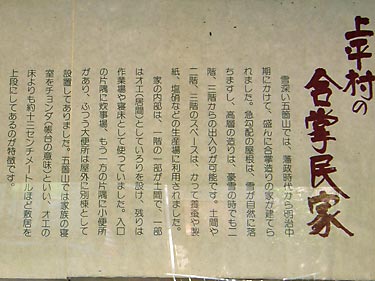 上平村の
合掌民家
雪深い五箇山では、藩政時代から明治中
期にかけて、盛んに合掌造りの家が建てら
れました。急勾配の屋根は、雪が自然に落
ちますし、高層の造りは、豪雪の時でも二
階、三階からの出入りが可能です。土間や
二階、三階のスペースは、かつて養蚕や製
紙、塩硝などの生産場に利用されました。
家の内部は、一階の一部が土間で、一部
はオエ(居間)としていろりを設け、残りは
作業場や寝床として使っていました。入口
の片隅に炊事場、もう一方の片隅に小便所
があり、ふつう大便所は屋外に別棟として
設置してありました。五箇山では家族の寝
室をチョンダ(帳台の意味)といい、オエの
床よりも約十三センチメートルほど敷居を
上段にしてあるのが特徴です。